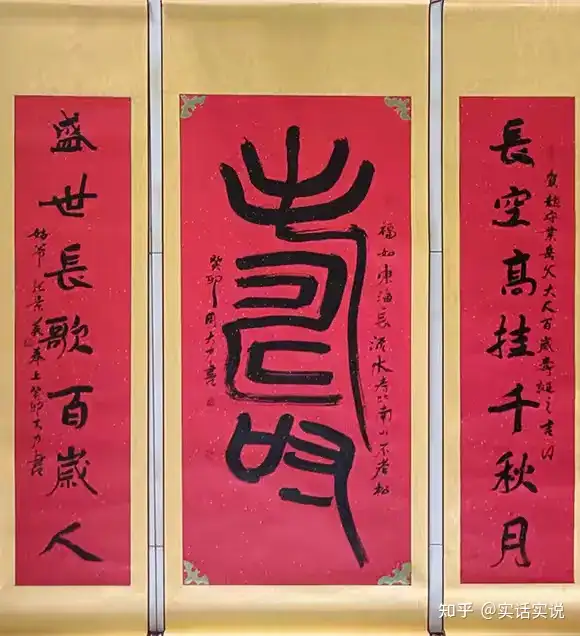 長空高挂千秋月
賀趙守業岳父大人百歲壽誕之吉日
福如东海長流水寿比南山不老松
壽
癸卯周大力書
盛世長歌百歲人
奉上癸卯大力書
知乎 @实话实说